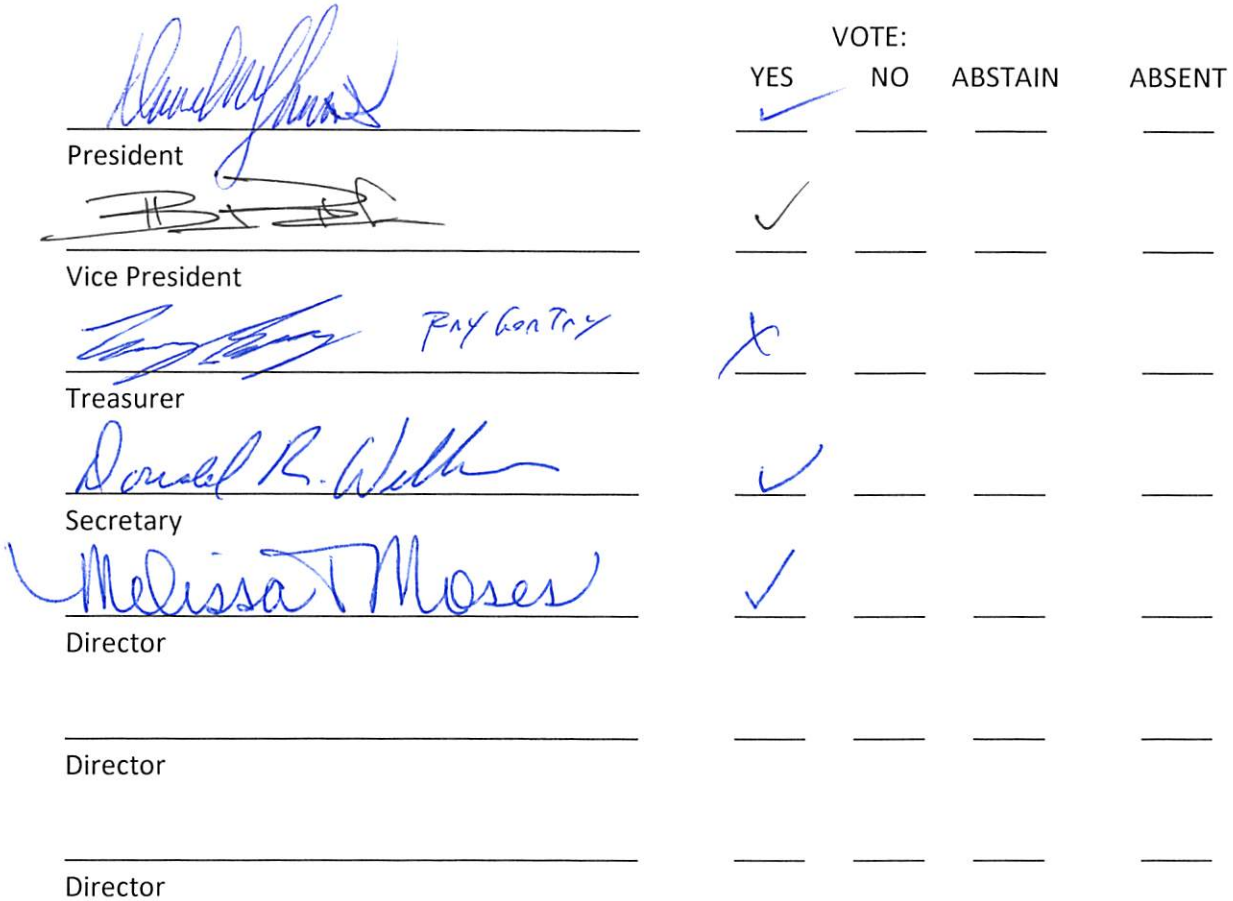 VOTE:
YES NO ABSTAIN ABSENT
President
Vice President
Ray Gentry
Treasurer
Donald R.
Secretary
Melissa T Moses
Director
Director
Director